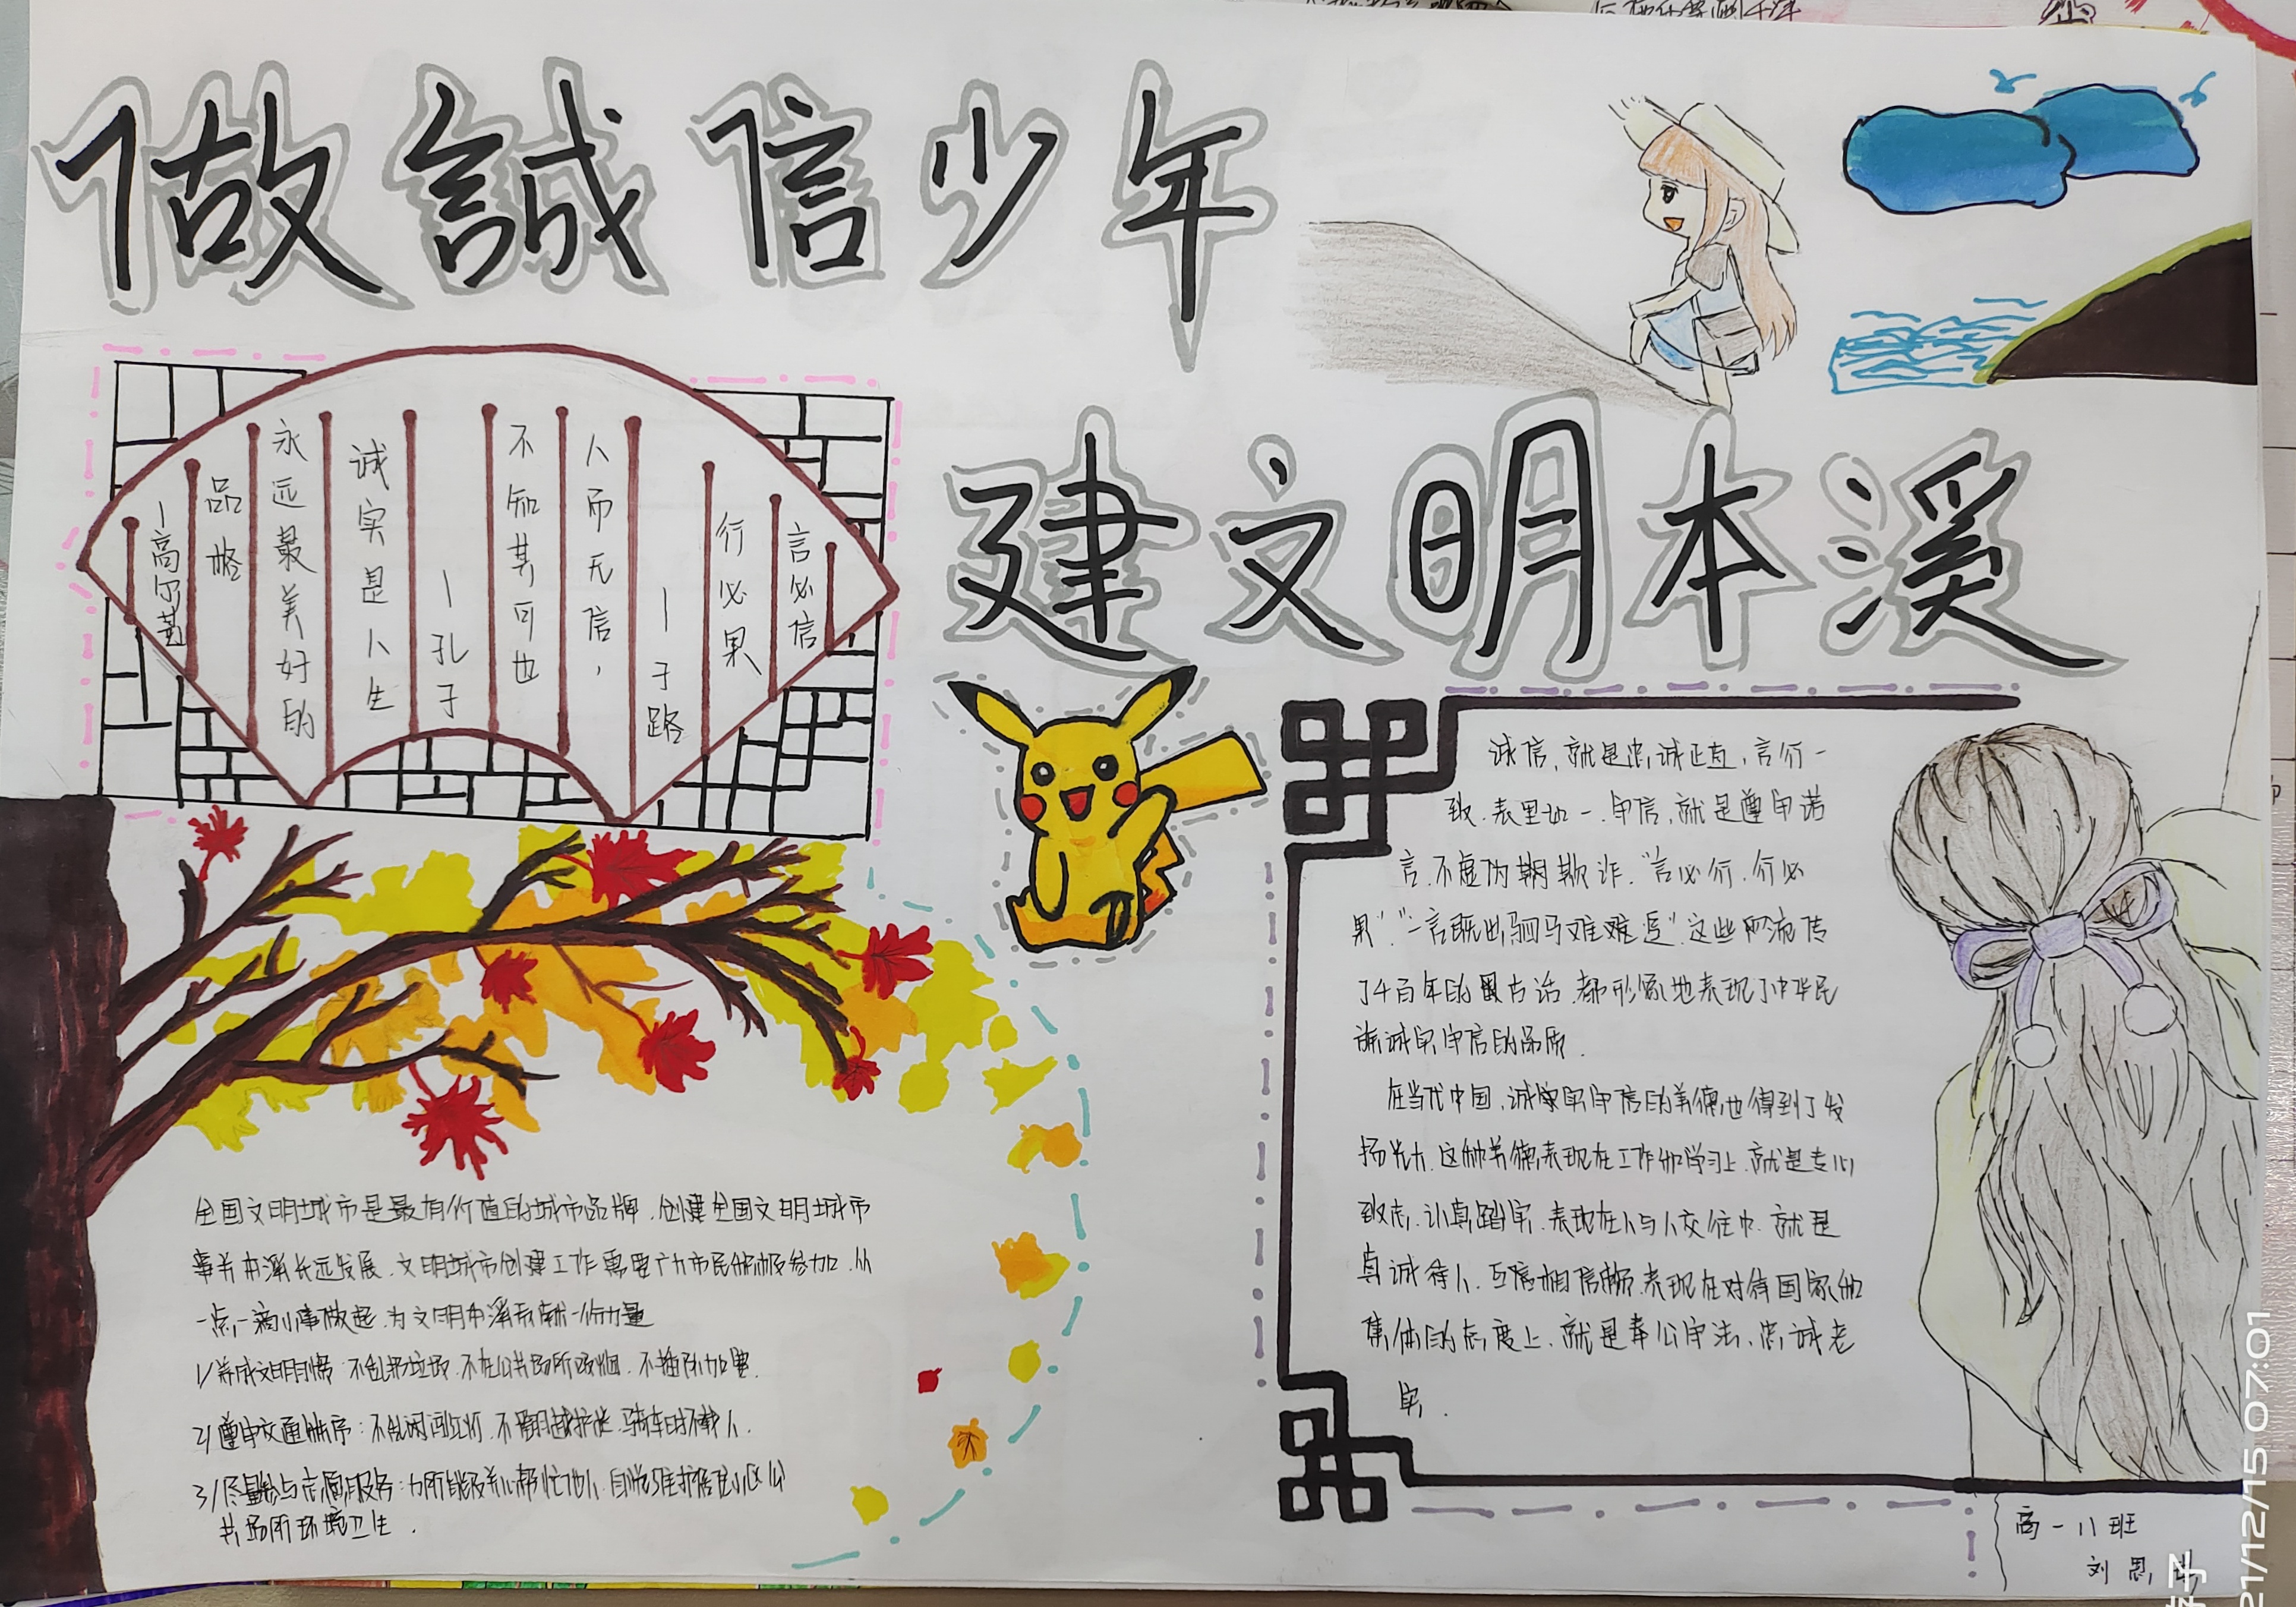 做誠信少年
建文明本溪
言必信
行必果
—子路
人而无信，
不知其可也
—孔子
诚实是人生
永远最美好的
品格
—高尔基
诚信，就是忠诚正直，言行一
致，表里如一，守信，就是遵守诺
言，不虚伪欺诈，“言必行，行必
果”“一言既出驷马难难追”这些流传
了千百年的古话，都形象地表现了中华民
族诚实守信的品质.
在当代中国，诚实守信的美德也得到了发
扬光大，这种美德表现在工作和学习上，就是专心
致志，认真踏实，表现在人与人交往中，就是
真诚待人，互相信赖，表现在对待国家和
集体的态度上，就是奉公守法，忠诚老
实.
全国文明城市是最有价值的城市品牌，创建全国文明城市
事关本溪长远发展，文明城市创建工作需要广大市民积极参加，从
一点一滴小事做起，为文明本溪贡献一份力量
1/养成文明习惯：不乱扔垃圾，不在公共场所吸烟，不插队加塞.
2/遵守交通秩序：不乱闯红灯，不翻越护栏，骑车时不载人.
3/尽量参与志愿服务：力所能及关心帮忙他人，自觉维护居住小区公
共场所环境卫生.
高一11班
刘思
21/12/15 07:01